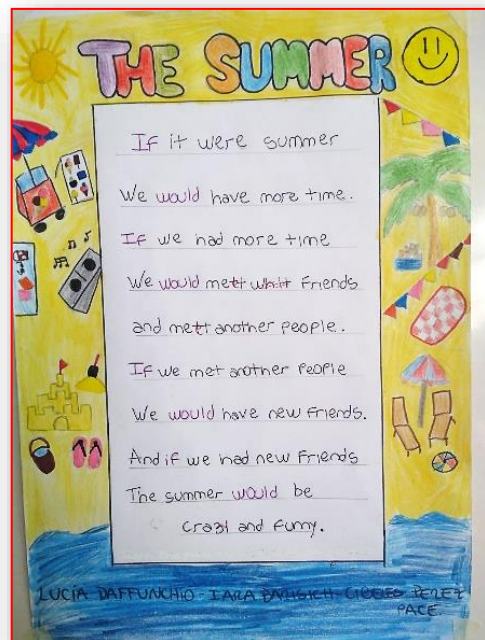 THE SUMMER
If it were summer
We would have more time.
If we had more time
We would mett whit friends
and mett another people.
If we met another people
We would have new friends.
And if we had new friends
The summer would be
crazi and funny.
LUCÍA DAFFUNCHIO - IARA - PEREZ
PACE